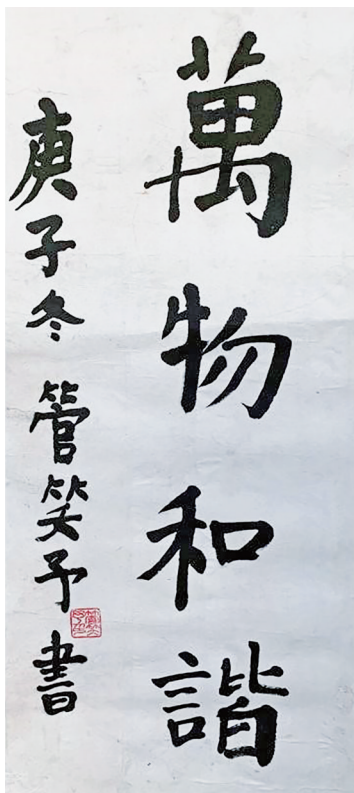 萬物和諧
庚子冬 管笑予書